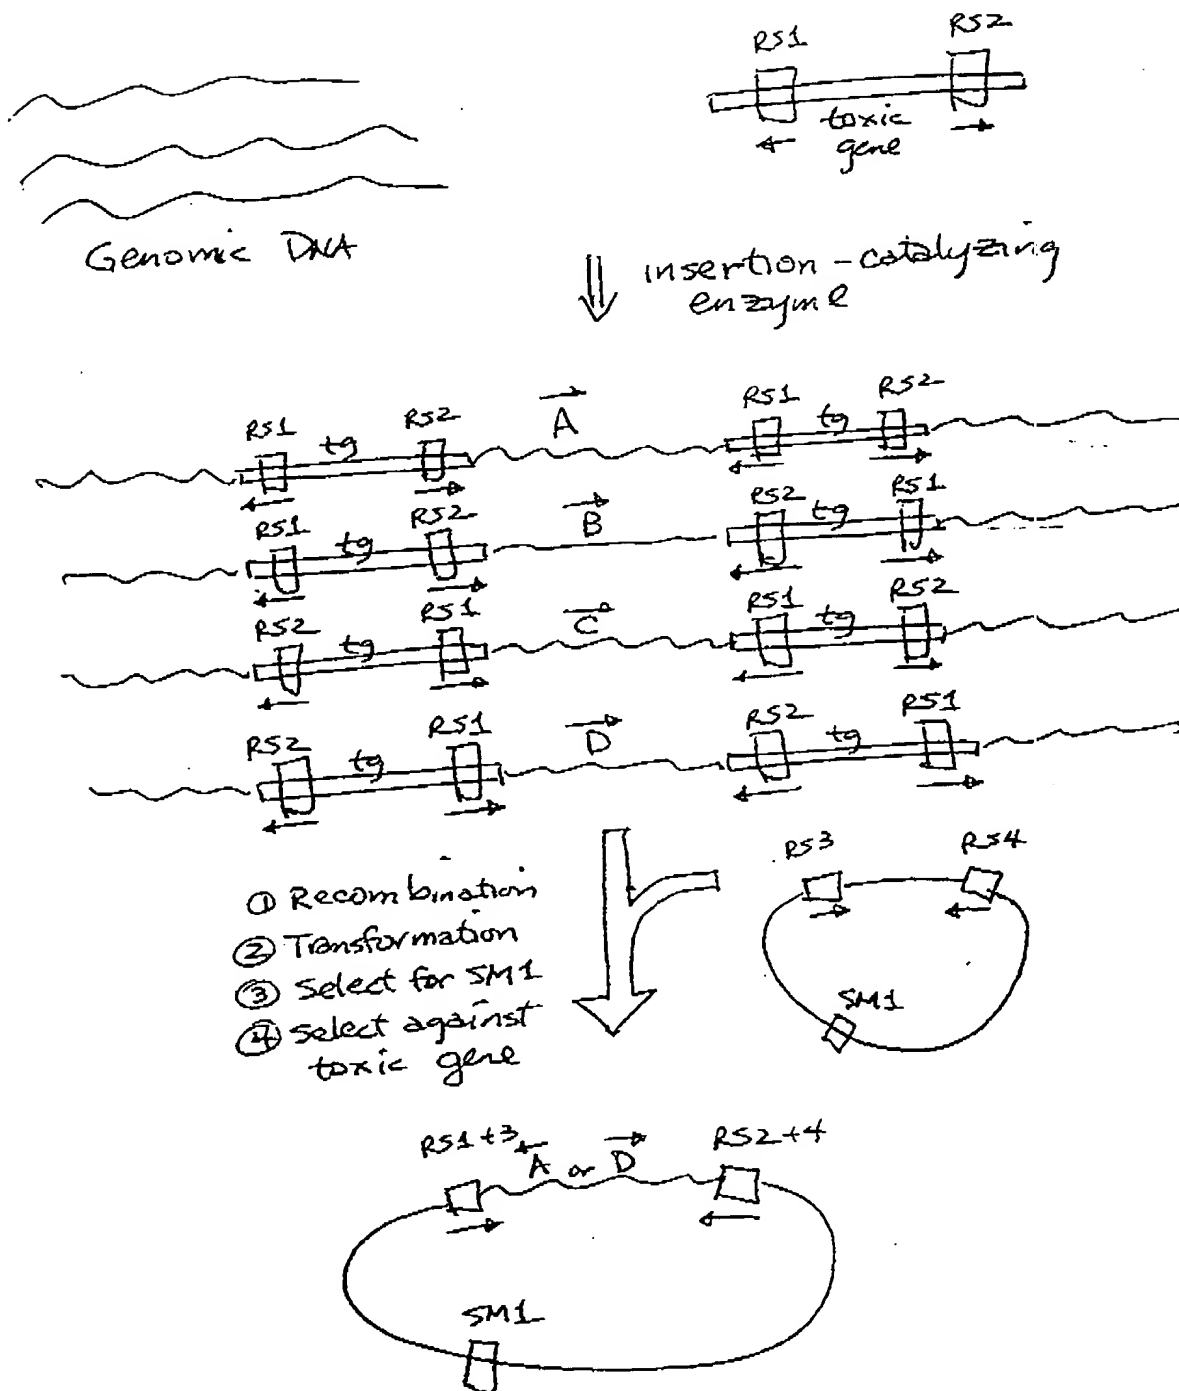 RS1 RS2
toxic
gene
Genomic DNA
insertion-catalyzing
enzyme
RS1 tg RS2 A RS1 tg RS2
RS1 tg RS2 B RS2 tg RS1
RS2 tg RS1 C RS1 tg RS2
RS2 tg RS1 D RS2 tg RS1
RS3 RS4
① Recombination
② Transformation
③ Select for SM1
④ Select against
toxic gene
SM1
RS1+3 A or D RS2+4
SM1